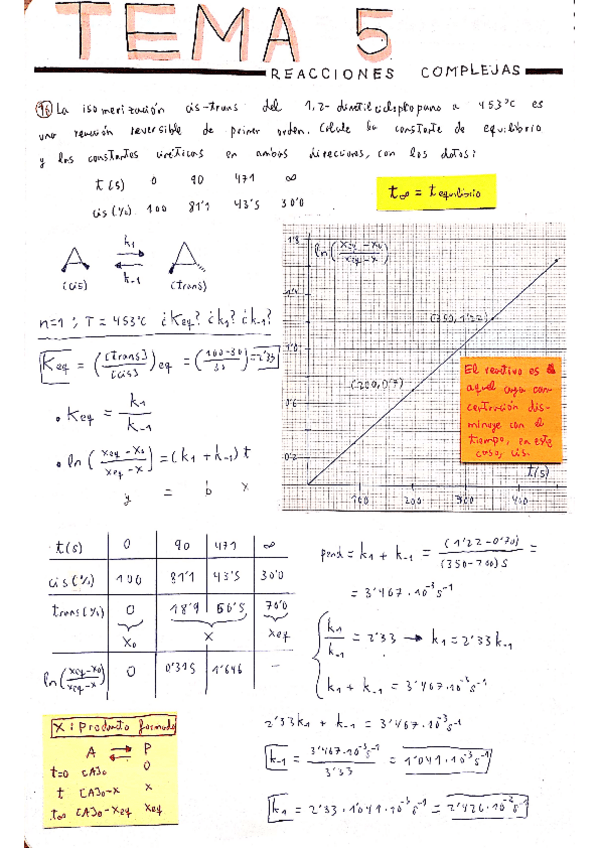 TEMA 5
REACCIONES COMPLEJAS
La isomerización cis-trans del 1,2-dimetilciclopropano a 453°C es
una reacción reversible de primer orden. Calcule la constante de equilibrio
y las constantes cinéticas en ambas direcciones, con los datos:
t(s) 0 90 471 ∞
cis(%) 100 81'1 43'5 30'0
t∞ = t equilibrio
k1
k-1
(cis) (trans)
n=1 ; T = 453°C ¿Keq? ¿k1? ¿k-1?
Keq = ([trans]/[cis])eq = (100-30/30) = 2'33
• Keq = k1/k-1
• ln(xeq-x0/xeq-x) = (k1 + k-1) t
y = b x
ln(xeq-x0/xeq-x)
1'8
1'4
(350, 1'22)
1'0
(200, 0'7)
0'6
0'2
100 200 300 400
t(s)
El reactivo es
aquel cuya con
centración dis-
minuye con el
tiempo, en este
caso, cis.
t(s) 0 90 471 ∞
cis(%) 100 81'1 43'5 30'0
trans(%) 0 18'9 56'5 70'0
x0 x xeq
ln(xeq-x0/xeq-x) 0 0'315 1'646 -
pend = k1 + k-1 = (1'22-0'70)/(350-200)s =
= 3'467·10⁻³ s⁻¹
k1/k-1 = 2'33 → k1 = 2'33 k-1
k1 + k-1 = 3'467·10⁻³ s⁻¹
2'33k1 + k-1 = 3'467·10⁻³ s⁻¹
k-1 = 3'467·10⁻³ s⁻¹/3'33 = 1'041·10⁻³ s⁻¹
k1 = 2'33 · 1'041·10⁻³ s⁻¹ = 2'426·10⁻² s⁻¹
x: Producto formado
A ⇌ P
t=0 [A]0 0
t [A]0-x x
t∞ [A]0-xeq xeq